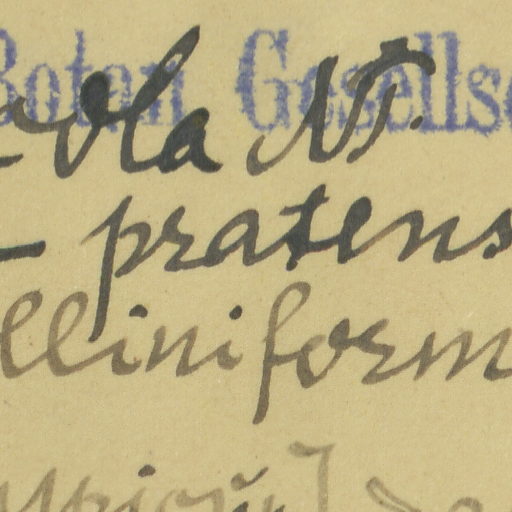 Botan Gesells
ola NT.
- pratens
lliniform